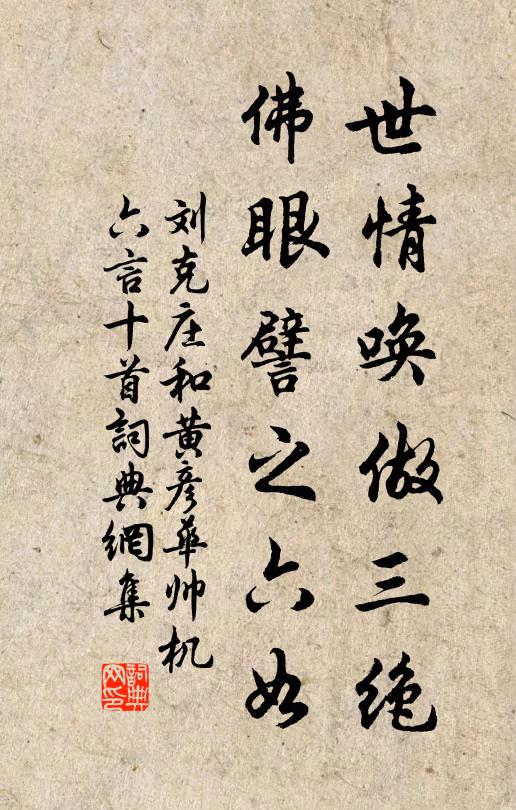 世情唤做三绝
佛眼譬之六如
刘克庄和黄彦华帅机
六言十首詞典網集
詞典网印